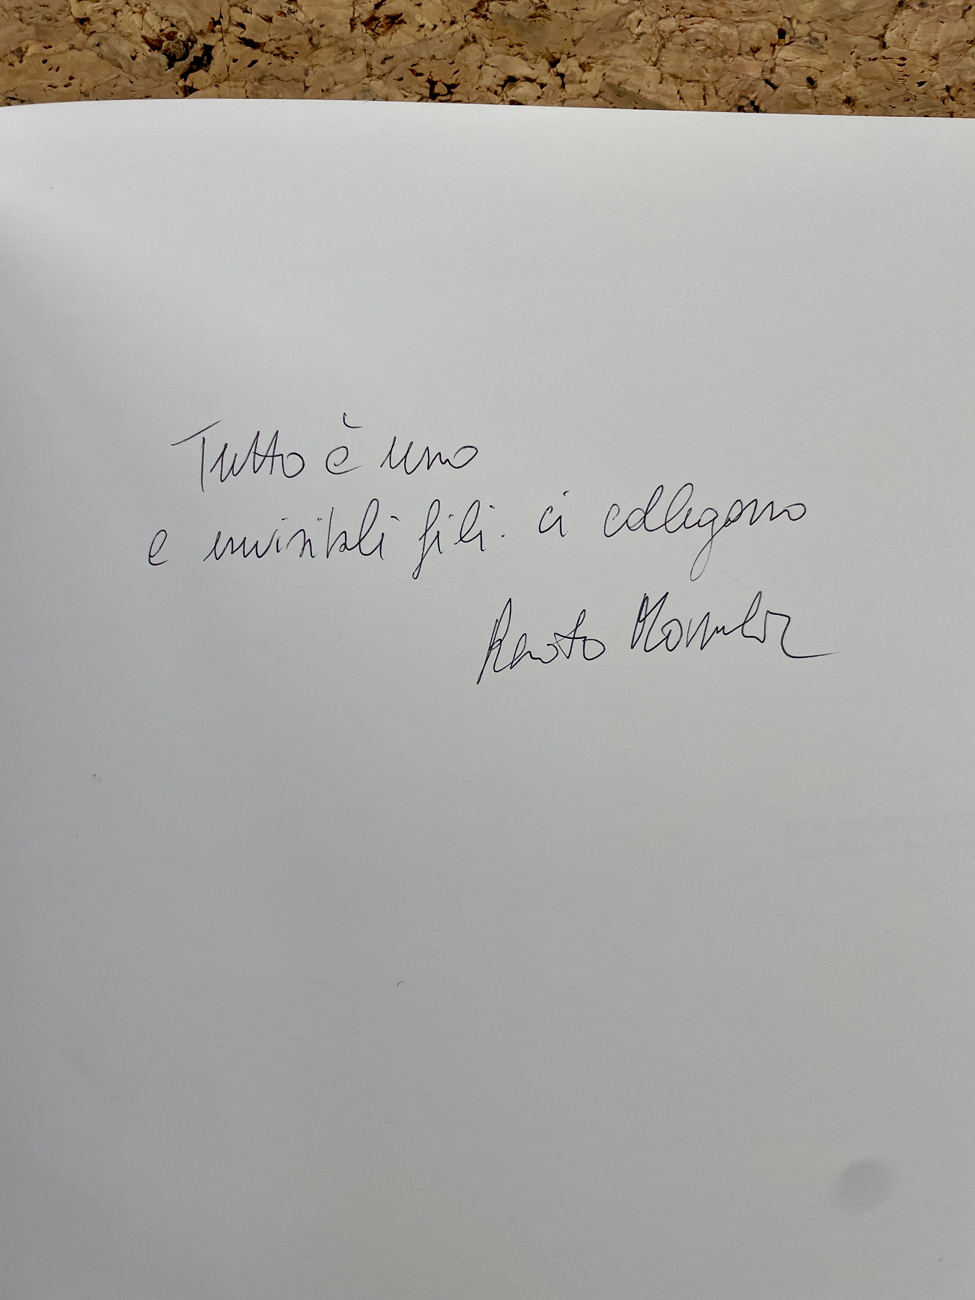 Tutto è uno
e invisibili fili ci collegano
Renato